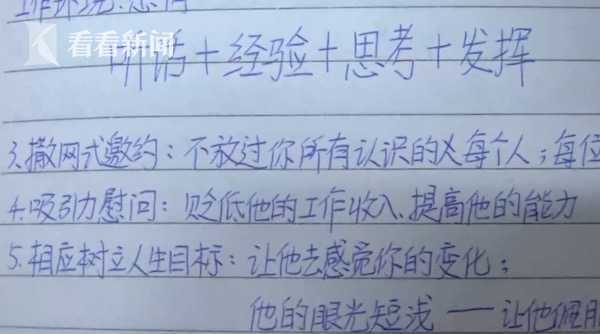 看看新闻
听话+经验+思考+发挥
3.撒网式邀约：不放过你所有认识的每个人；每位
4.吸引力慰问：贬低他的工作收入、提高他的能力
5.相应树立人生目标：让他去感觉你的变化；
他的眼光短浅——让他